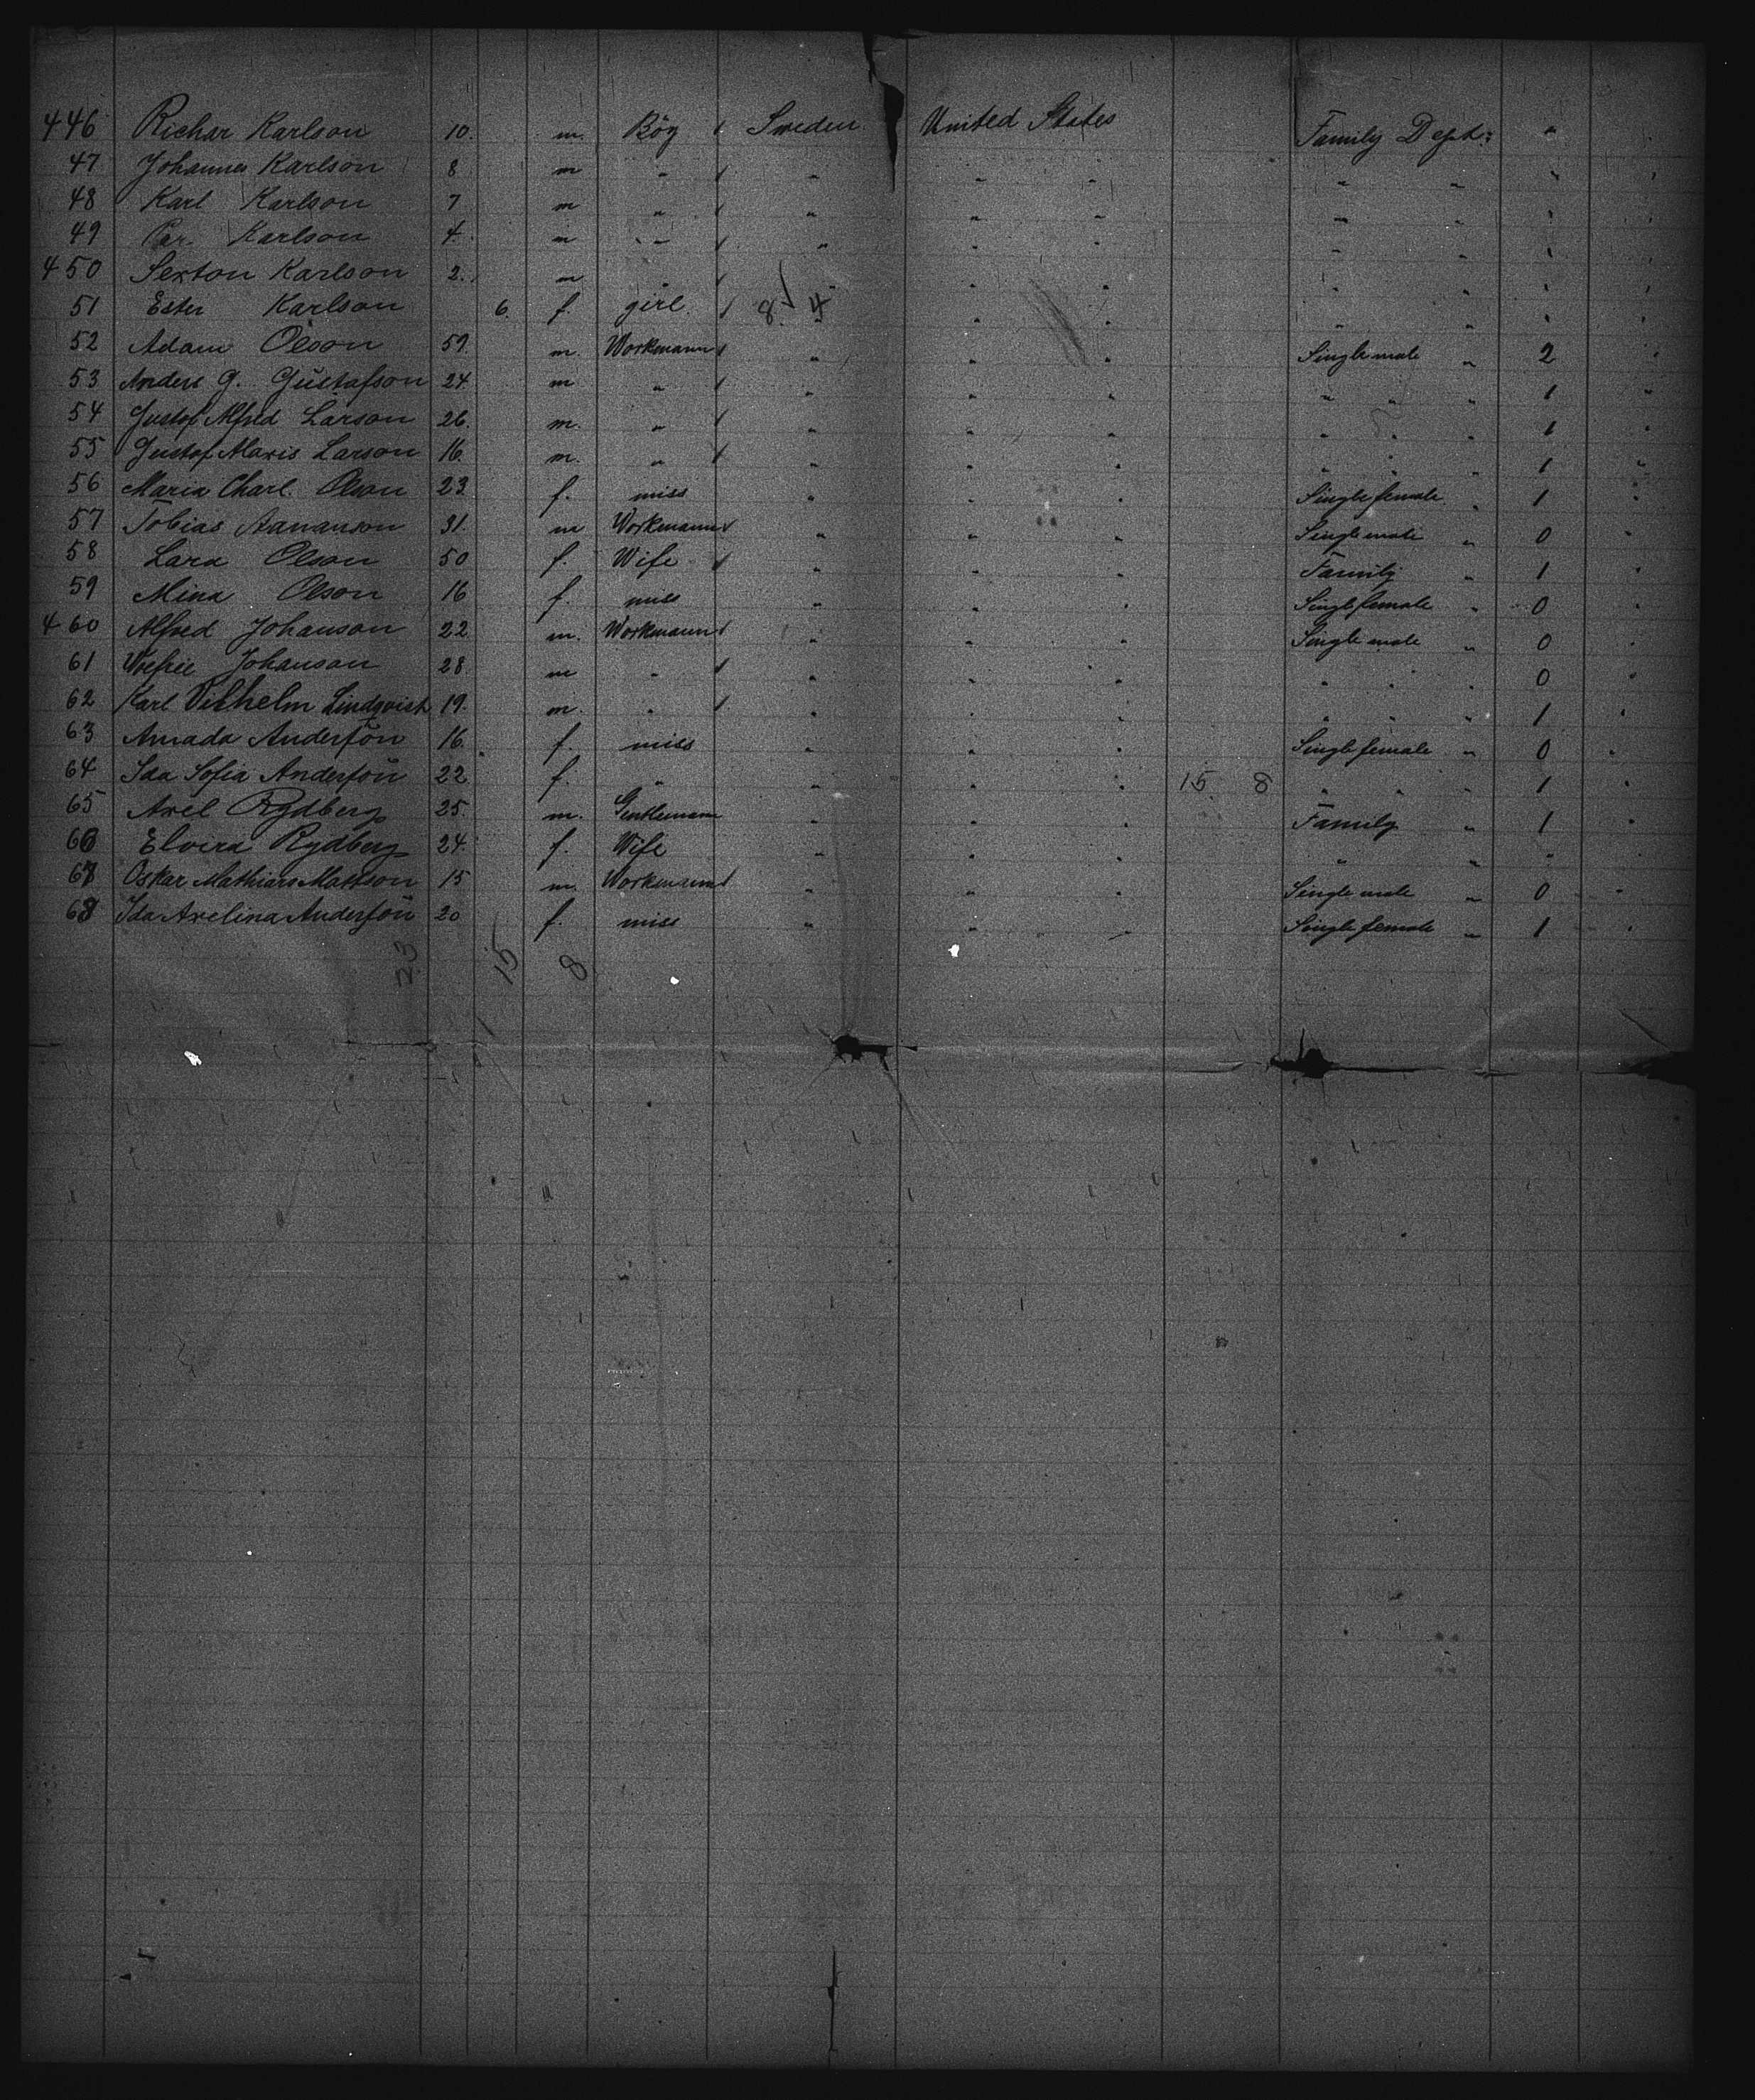 446 Richar Karlson 10. m. Böy 1 Sweden United States Family Dept: "
47 Johannes Karlson 8 m " 1 " " " " " "
48 Karl Karlson 7 m " 1 " " " " " "
49 Karlson 4. m " 1 " " " " " "
450 Sexton Karlson 2. m " 1 " " " " " "
51 Ester Karlson 6. f. girl. 1 8 4 " " " " "
52 Adam Olson m. Workmann 1 " " " Single male " 2 "
53 Anders G. Gustafson 24. m " 1 " " " " " " 1 "
54 Gustof Alfred Larson 26. m. " 1 " " " " " " 1 "
55 Gustof Larson 16. m. " 1 " " " " " " 1 "
56 Maria Charl. Olson 23 f. miss " " " Single female " 1 "
57 Tobias 31. m Workmann 1 " " " Single male " 0 "
58 Lara Olson 50 f. Wife 1 " " " Family " 1 "
59 Mina Olson 16 f. miss " " " Single female " 0 "
460 Alfred Johanson 22 m. Workmann 1 " " " Single male " 0 "
61 Johanson 28 m " 1 " " " " " " 0 "
62 Karl Vilhelm Lindqvist 19. m. " 1 " " " " " " 1 "
63 Amada Anderson 16. f. miss " " " Single female " 0 "
64 Ida Sofia Anderson 22 f. " " " " 15 8 " " " 1 "
65 Axel Rydberg 25. m. Gentlemann " " " Family " 1 "
66 Elvira Rydberg 24. f. Wife " " " " " "
67 Oskar Mathias Mattson 15 m. Workmann 1 " " " Single male " 0 "
68 Ida Axelina Anderson 20 f. miss " " " Single female " 1 "
23 15 8